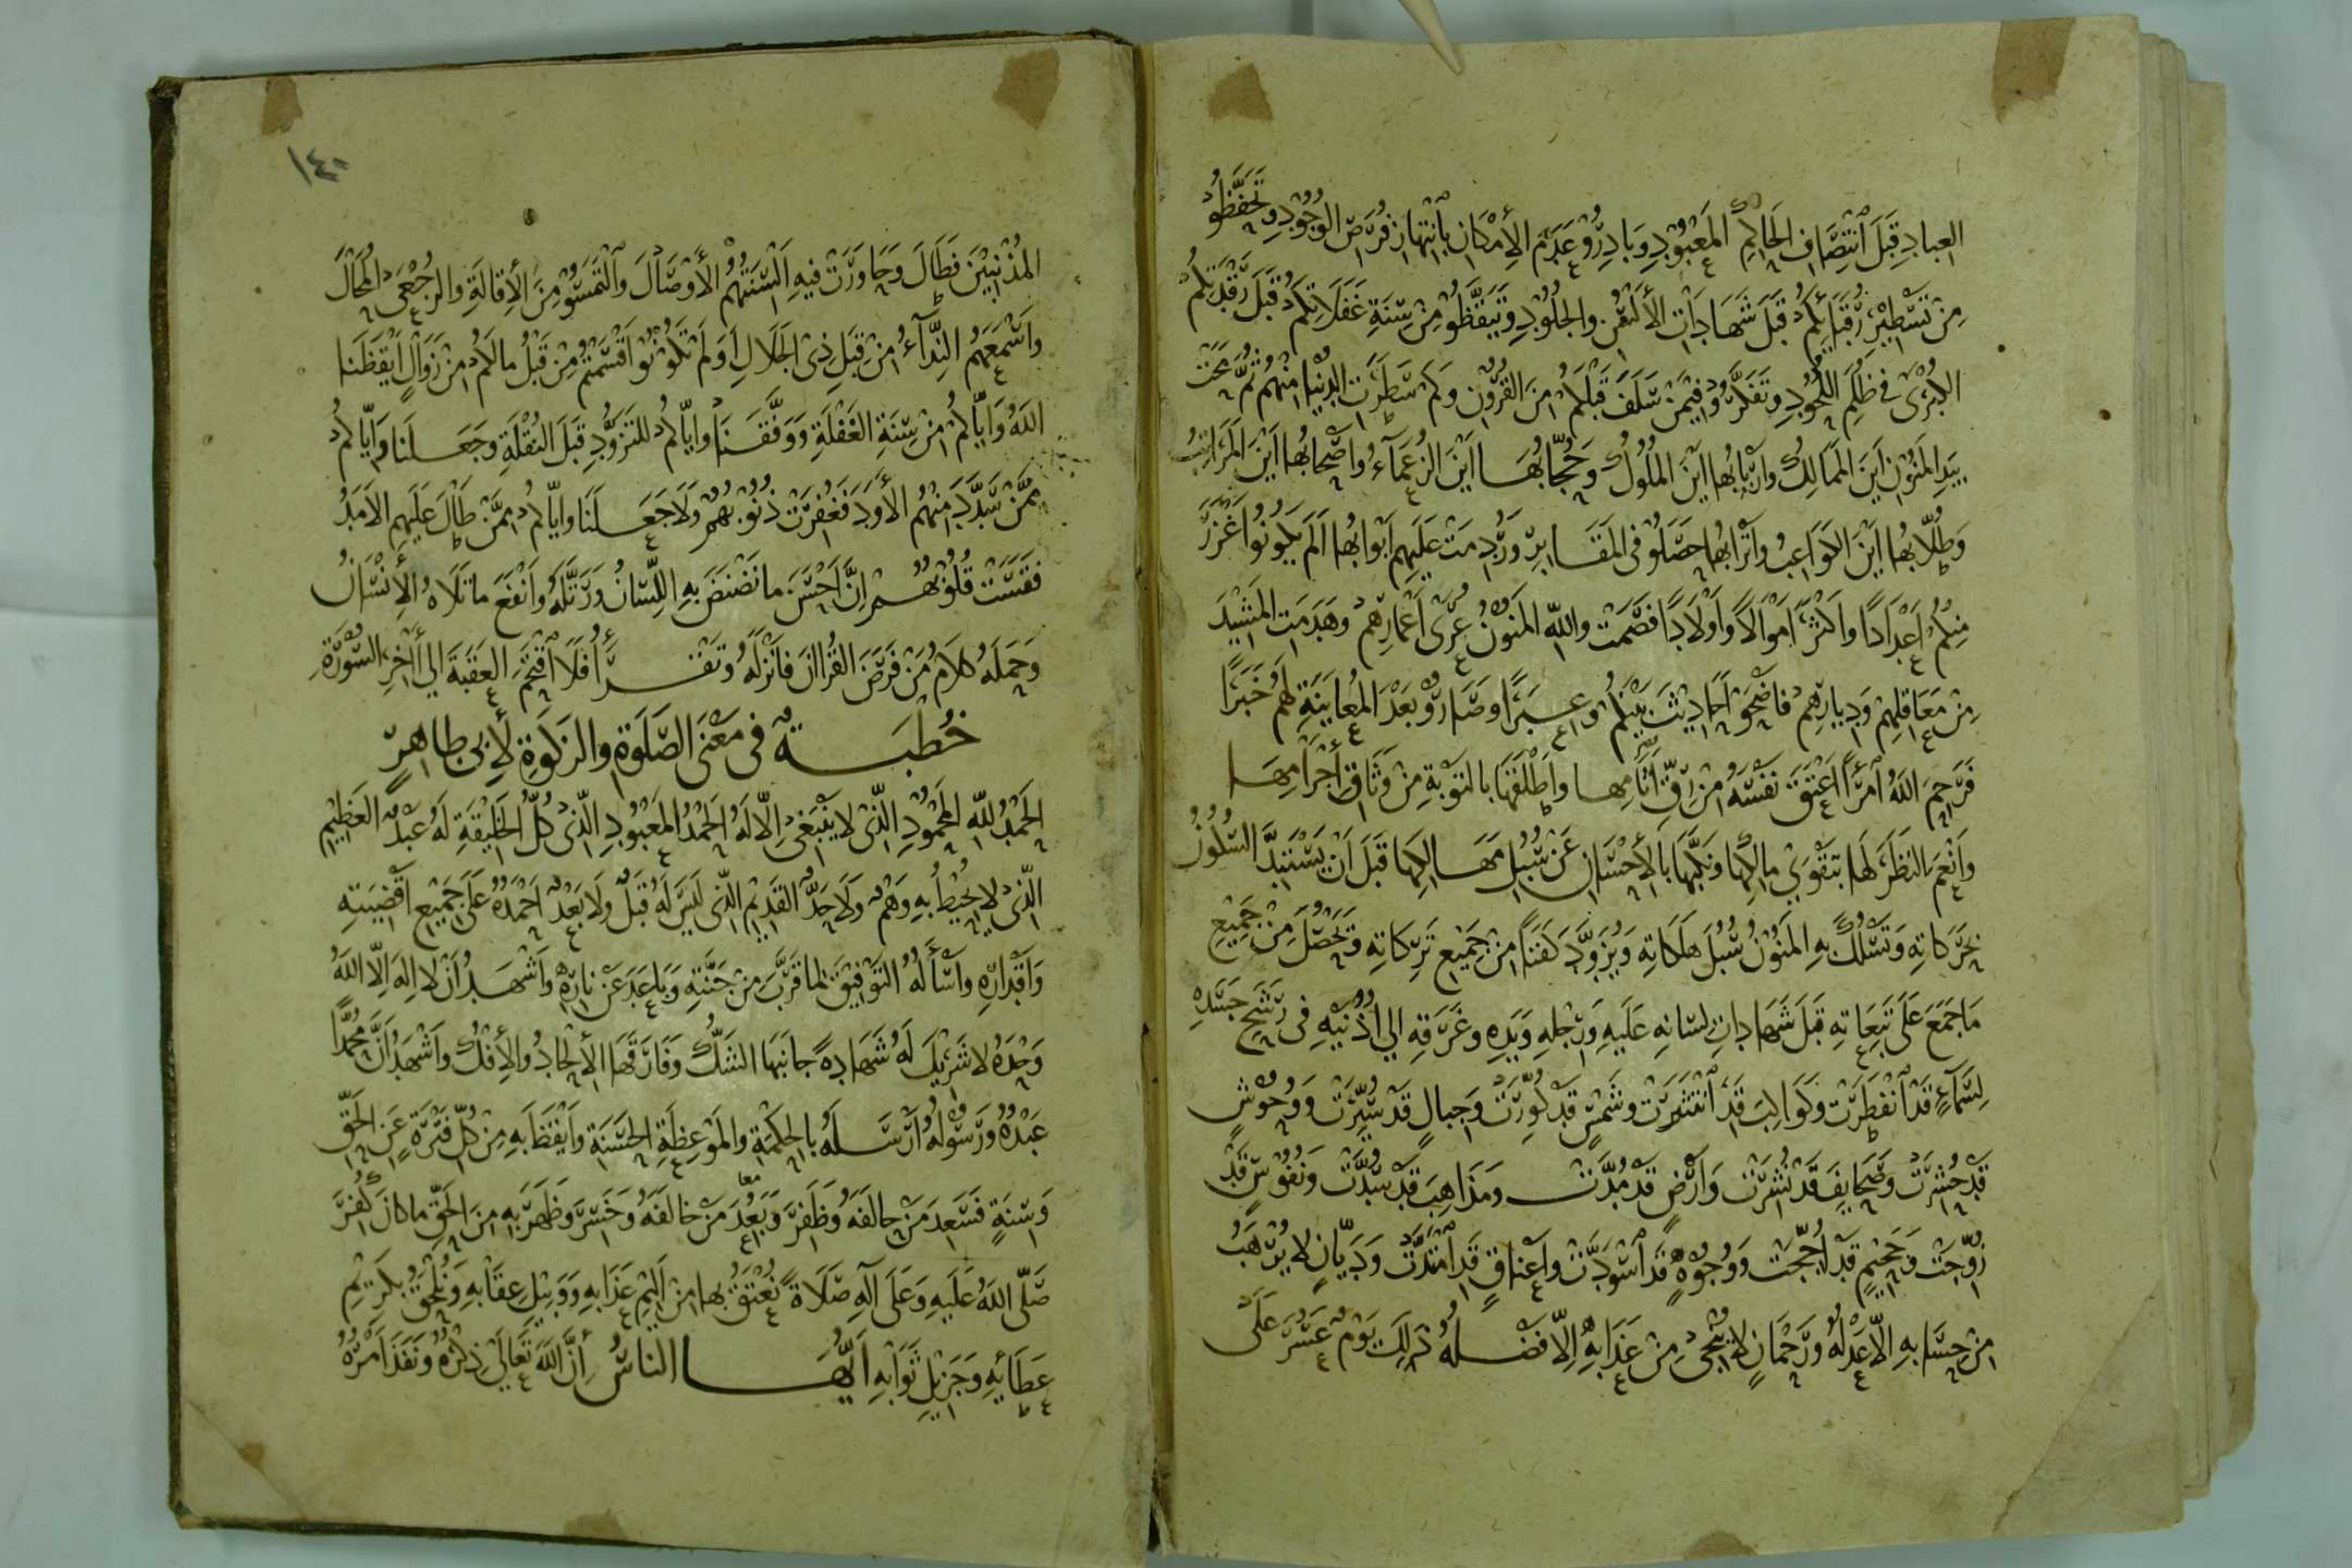 العباد قبل انتصاف الحاكم المعبود وبادرو عدم الأمكان بانتهاز فرص الوجود وتحفظو
من تسطير رقبائكم قبل شهادات الألسن والجلود وتيقظو من سنة غفلاتكم قبل رقدتكم
الكبرى في ظلم اللحود وتفكرو فيمن سلف قبلكم من القرون وكم سطرت الدنيا منهم ثم محت
بيد المنون اين الممالك واربابها اين الملوك وحجابها اين الزعماء واصحابها اين المراتب
وطلابها اين الكواعب واترابها حصلو في المقابر وردمت عليهم ابوابها الم يكونوا اغزر
منكم اعدادا واكثر اموالا واولادا فصمت والله المنون عرى اعمارهم وهدمت المشيد
من معاقلهم وديارهم فاضحو احاديث بينكم وعبرا وصارو بعد المعاينة لهم خبرا
فرحم الله امرأ اعتق نفسه من رق اثامها واطلقها بالتوبة من وثاق أجرامها
وانعم النظر لها بتقوي مالكها ونكبها بالأحسان عن سبيل مهالكها قبل ان يستبد السكون
بحركاته وتسلك به المنون سبل هلكاته ويزود كفنا من جميع تركاته وتحصل من جميع
ما جمع على تبعاته قبل شهادات لسانه عليه ورجله ويده وغرقه الي اذنيه في رشح جسده
لسماء قد انفطرت وكواكب قد انتثرت وشمس قد كورت وجبال قد سيرت ووحوش
قد حشرت وصحايف قد نشرت وارض قد مدت ومذاهب قد سدت ونفوس قد
زوجت وجحيم قد اججت ووجوه قد اسودت واعناق قد امتدت وديان لا يرهب
من حسابه الا عدله ورحمان لا ينجى من عذابه الا فضله ذلك يوم عسر على
١٤٠
المذنبين فطال وحاورت فيه السنتهم الأوصال والتمسو من الأقالة والرجعى المحال
واسمعهم النداء من قبل ذى الجلال اولم تكونو اقسمتم من قبل مالكم من زوال ايقظنا
الله واياكم من سنة الغفلة ووفقنا واياكم للتزود قبل النقلة وجعلنا واياكم
ممن سدد منهم الأود فغفرت ذنوبهم ولا جعلنا واياكم ممن طال عليهم الامد
فقست قلوبهم ان احسن ما نضنض به اللسان ورتله وانفع ما تلاه الأنسان
وحمله كلام من فرض القراان فانزله وتقرأ فلا اقتحم العقبة الي أخر السورة
خطبة في معنى الصلوة والزكوة لأبى طاهر
الحمد لله المحمود الذى لا ينبغى الا له الحمد المعبود الذى كل الخليقة له عبد العظيم
الذى لا يحيط به وهم ولا حد القديم الذى ليس له قبل ولا بعد احمده على جميع اقضيته
واقداره واسأله التوفيق لما قرب من جنته وباعد عن ناره واشهد ان لا اله الا الله
وحده لا شريك له شهادة جانبها الشك وفارقها الألحاد والأفك واشهد ان محمدا
عبده ورسوله ارسله بالحكمة والموعظة الحسنة وايقظ به من كل فترة عن الحق
وسنة فسعد من حالفه وظفر وبعد من خالفه وخسر وظهر به من الحق ما كان كفر
صلى الله عليه وعلى آله صلاة نعتق بها من اليم عذابه ووبيل عقابه ونلحق بكريم
عطائه وجزيل ثوابه ايها الناس أن الله تعالي ذكره ونفذ امره